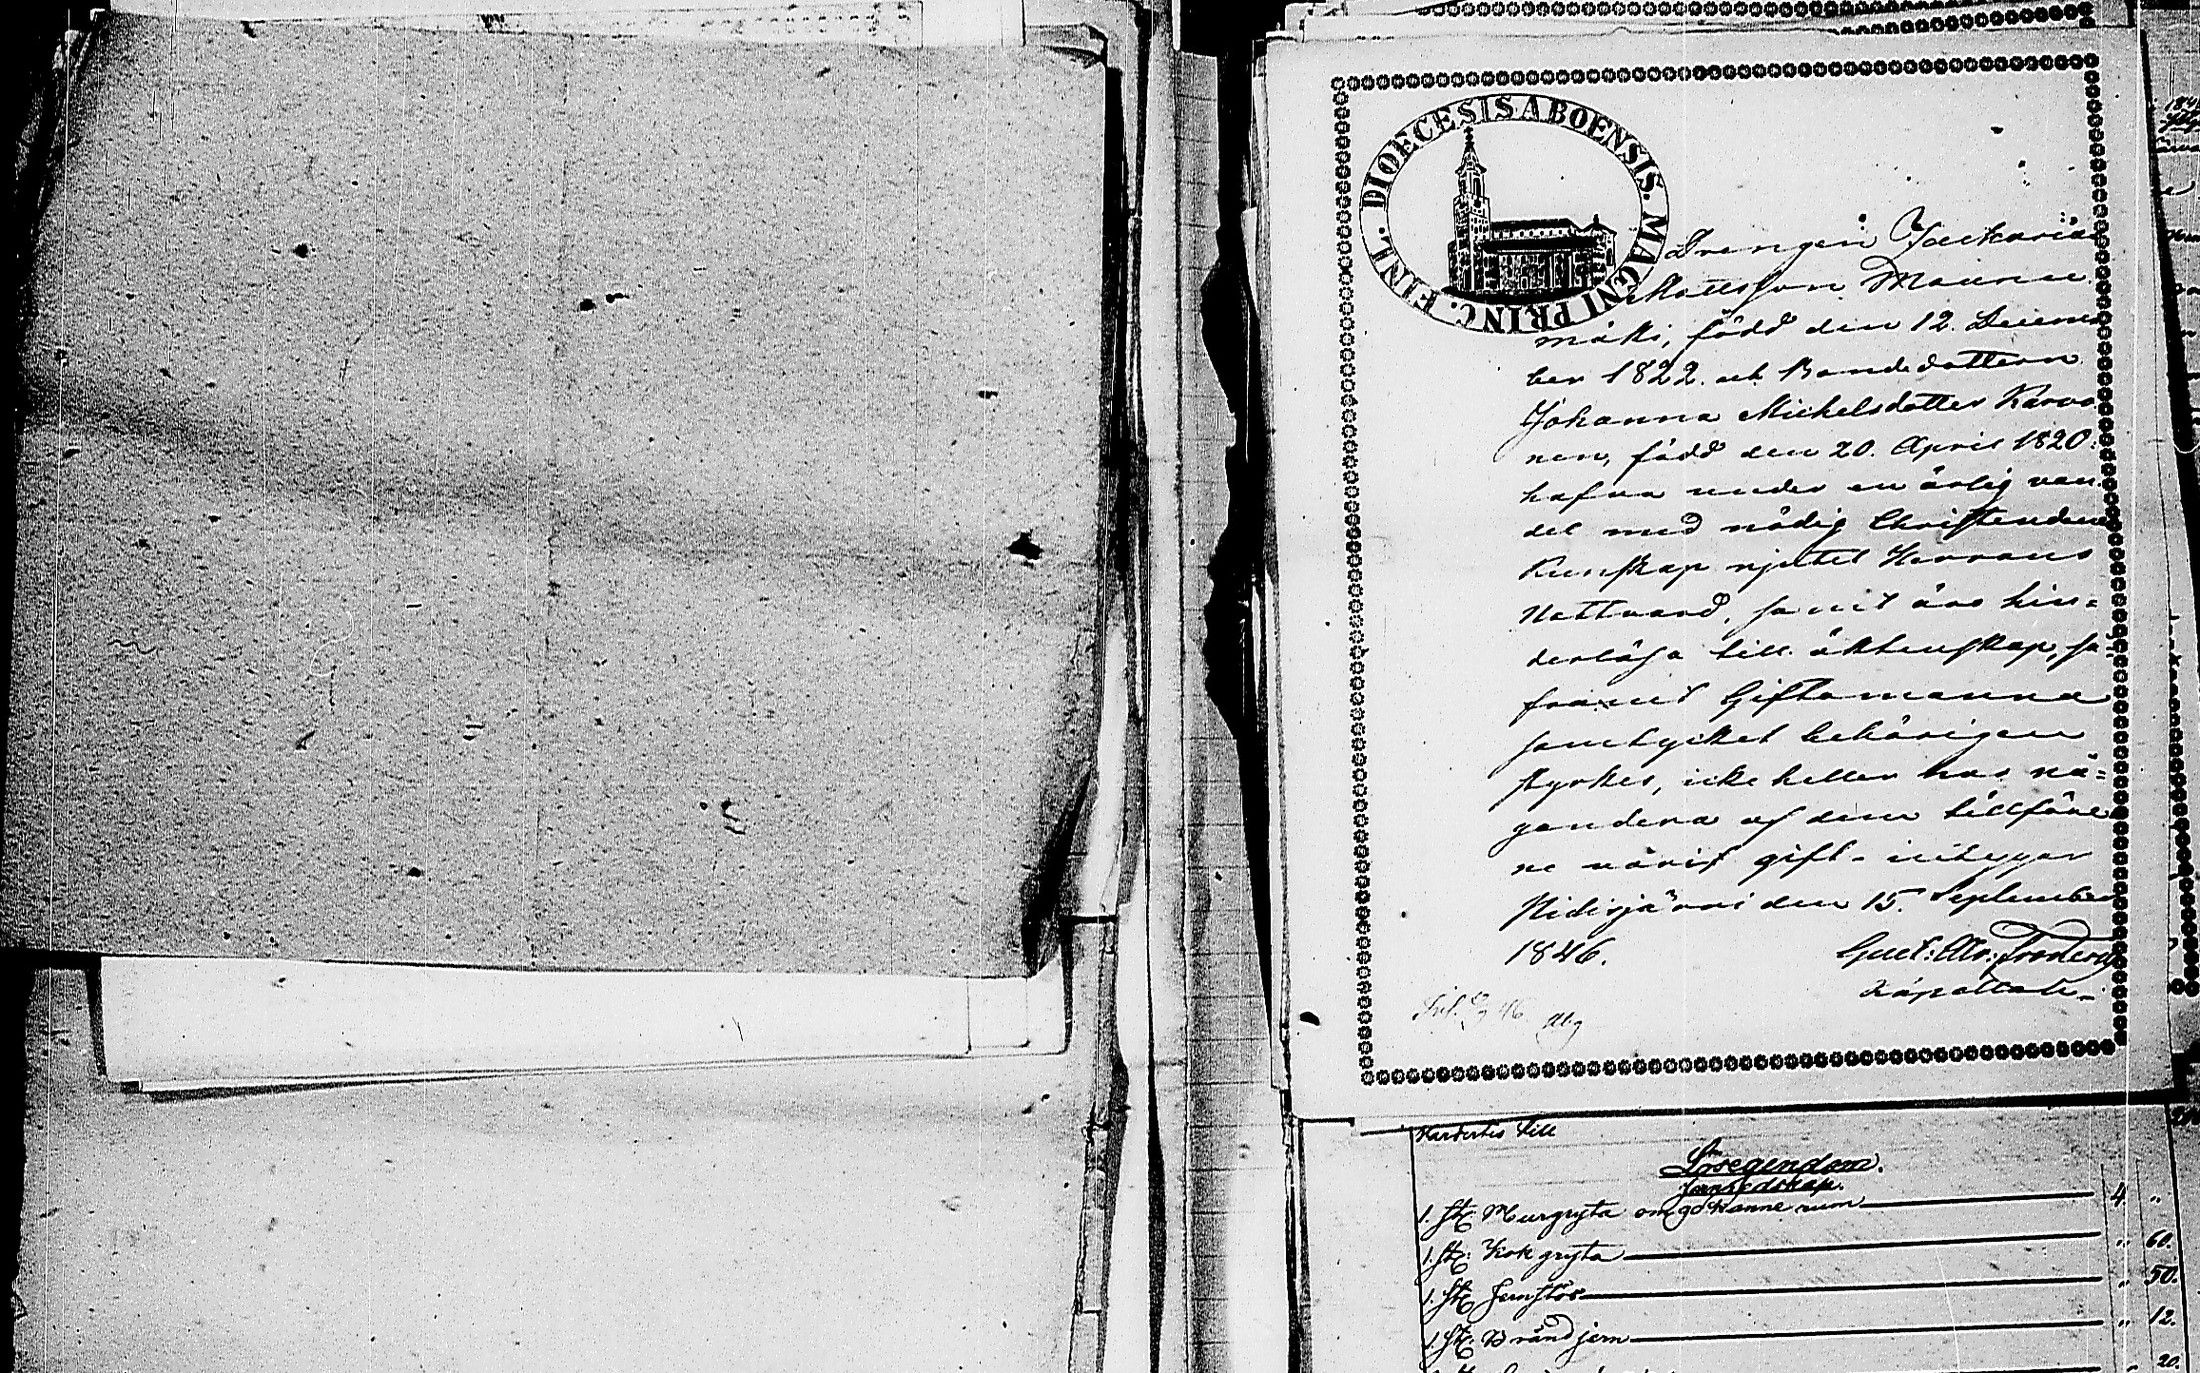 DIOECESIS ABOENSIS. MAGNI PRINC. FINL.
Drengen Zackarias
Mattsson Maunu
mäki, född den 12. Decem
ber 1822. och Bondedottern
Johanna Michelsdotter Karvo
nen, född den 20. April 1820.
hafva under en ärlig van
del med nödig Christendoms
Kunskap njutit Herrans
Nattvard, samt äro hin=
derlösa till äktenskap, så
framt Giftomanna
samtycket behörigen
styrkes, icke heller har nå=
gondera af dem tillföre
ne varit gift. intygar
Pidisjärvi den 15. September
1846.
Gust:
Kapellan.
46.
till
Lösegendom.
Jernredskap.
1. st. Murgryta om 90 Kanne rum 4 "
1. st. Kok gryta " 60.
1. st. " 50.
1. st. Brändjern " 12.
" 20.